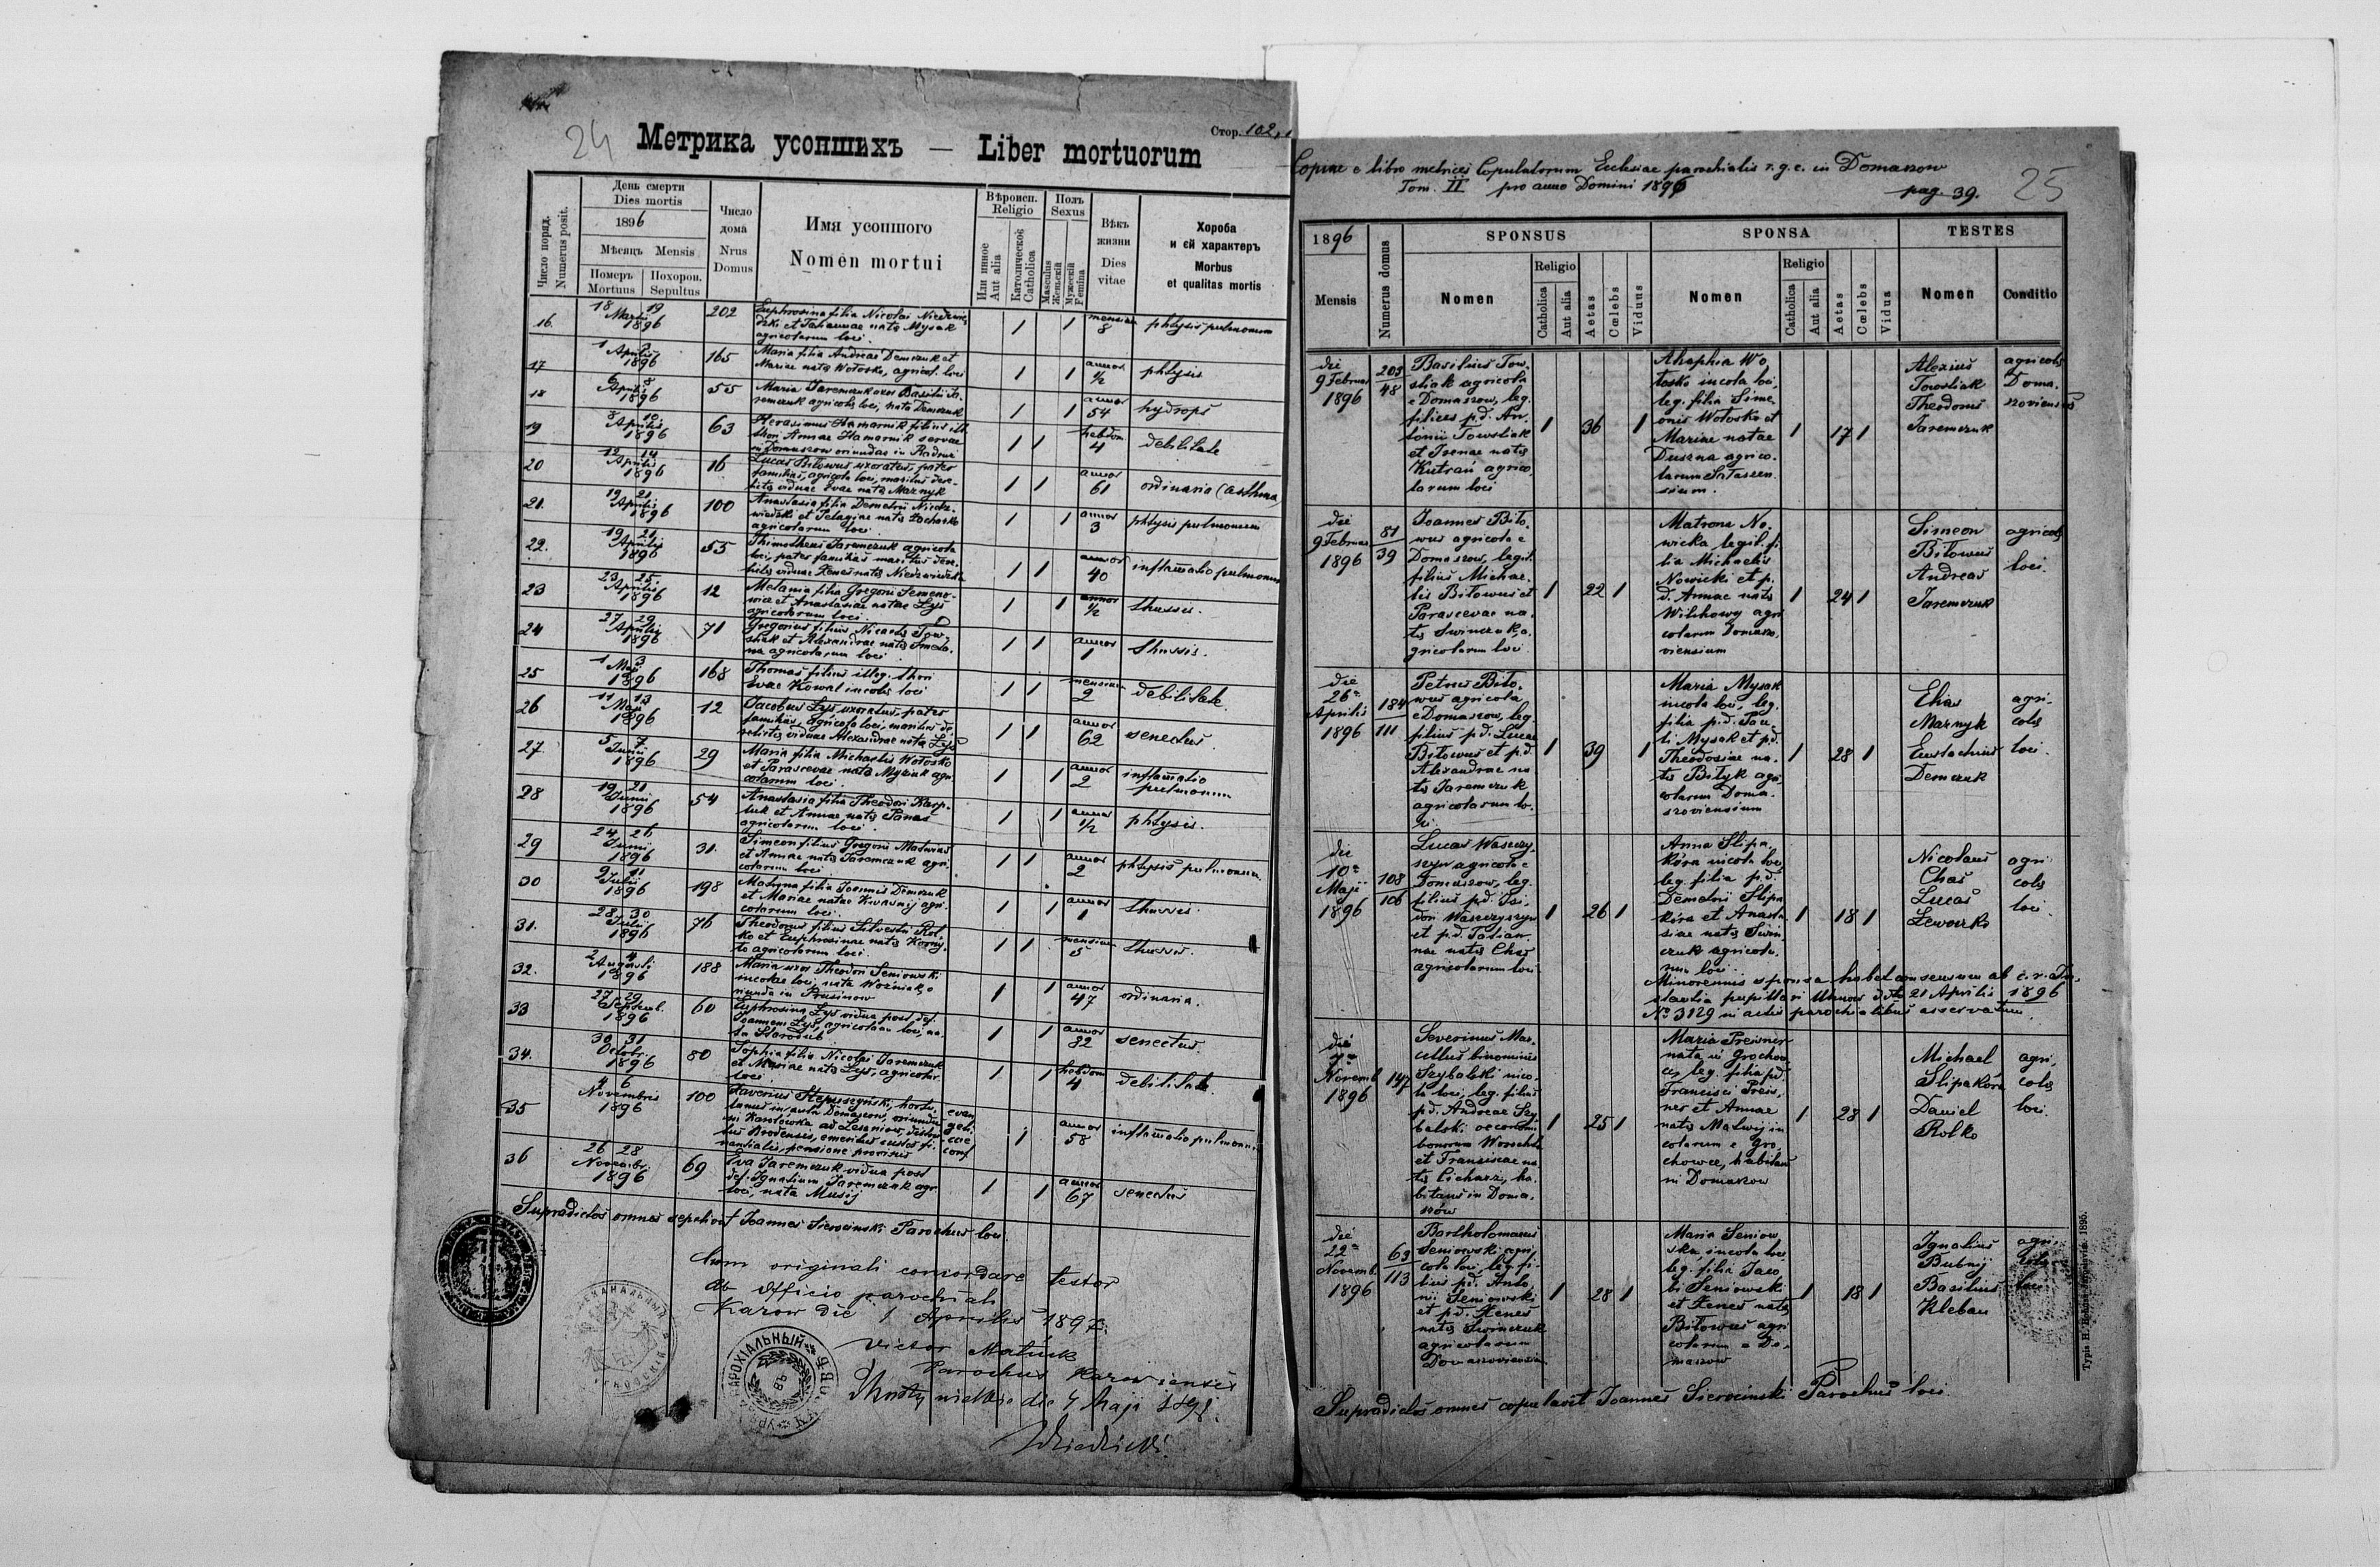 24
Метрика усопшихъ — Liber mortuorum
Стор. 102
Число поряд. Numerus posit.
День смерти
Dies mortis
1896
Мѣсяцъ Mensis
Померъ Mortuus
Похорон. Sepultus
Число дома
Nrus Domus
Имя усопшого
Nomen mortui
Вѣроисп.
Religio
Или инное Aut alia
Католическоє Catholica
Полъ
Sexus
Masculus
Женьскій
Мужескій
Femina
Вѣкъ жизни
Dies vitae
Хороба
и єй характеръ
Morbus
et qualitas mortis
16. 18 19 Martii 1896 202 Euphrosina filia Nicolai
et Tatiannae nata Mysak
agricolarum loci.
1 1 mensium 8 phtysis pulmonum
17 1 Aprilis 1896 165 Maria filia Andreae Demczuk et
Mariae nata Wołosko, agricol. loci
1 1 annor ½ phtysis
18 6 8 Aprilis 1896 55 Maria Jaremczuk uxor Basilii Ja
remczuk agricolae loci, nata Demczuk
1 1 annor 54 hydrops
19 8 10 Aprilis 1896 63 Herasimus Hamarnik filius ill.
thori Annae Hamarnik servae
in Domaszow oriundae in
1 1 hebdom 4 debilitate
20 12 14 Aprilis 1896 16 Lucas Biłowus uxoratus, pater
familias, agricola loci, maritus dere-
lictae viduae Evae nata Maznyk
1 1 annor 61 ordinaria (asthma
21. 19 21 Aprilis 1896 100 Anastasia filia Demetrii Niedz-
wiedzki et Pelagiae nata
agricolarum loci
1 1 annor 3 phtysis pulmonum
22. 19 21 Aprilis 1896 55 Thimotheus Jaremczuk agricola
loci, pater familias maritus dere-
lictae viduae Xenes nata Niedzwiedzka
1 1 annor 40 inflamatio pulmonum
23 23 25 Aprilis 1896 12 Melania filia Gregorii Semeno-
wicz et Anastasiae natae Łys
agricolarum loci.
1 1 annor ½ thussis.
24 27 29 Aprilis 1896 71 Gregorius filius Nicolai Tow-
stiak et Alexandrae nata
na agricolarum loci
1 1 annor 1 thussis.
25 1 3 Maji 1896 168 Thomas filius illeg. thori
Evae Kowal incolae loci
1 1 mensium 2 debilitate
26 11 13 Maji 1896 12 Jacobus Łys uxoratus, pater
familias, agricola loci, maritus de
relictae viduae Alexandrae nata Łys
1 1 annor 62 senectus.
27 5 7 Junii 1896 29 Maria filia Michaelis Wołosko
et Parascevae nata agri
colarum loci.
1 1 annor 2 inflamatio
pulmonum
28 19 21 Junii 1896 54 Anastasia filia Theodori Karp-
luk et Annae nata Panas
agricolarum loci.
1 1 annor ½ phtysis.
29 24 26 Junii 1896 31. Simeon filius Gregorii
et Annae nata Jaremczuk agri
colarum loci
1 1 annor 2 phtysis pulmonum
30 9 11 Julii 1896 198 Matrona filia Joannis Demczuk
et Mariae natae Kwasnij agri-
colarum loci.
1 1 annor 1 thussis
31. 28 30 Julii 1896 76 Theodorus filius Silvestri Rol
ko et Euphrosinae nata
agricolarum loci.
1 1 mensium 5 thussis.
32. 2 4 Augusti 1896 188 Maria uxor Theodori Seniowski
incolae loci, nata Wozniak, o
riunda in Prusinow
1 1 annor 47 ordinaria.
33 27 29 Septemb. 1896 60 Euphrosina Łys vidua post def.
Joannem Łys, agricolam loci, na
ta Starodub
1 1 annor 82 senectus.
34. 30 31 Octobr. 1896 80 Sophia filia Nicolai Jaremczuk
et Mariae nata Łys, agricolar.
loci
1 1 hebdom 4 debilitate
35 4 6 Novembris 1896 100 Xaverius hortu
lanus in aula Domaszow, oriundus
in ad Lesaniow, distric
tus Brodensis, emeritus custos fi-
nantialis, pensione provisus
evan geli cae conf.
1 annor 58 inflamatio pulmonum
36 26 28 Novembr. 1896 69 Eva Jaremczuk vidua post
def. Ignatium Jaremczuk agr.
loci, nata Musij
1 1 annor 67 senectus
Supradictos omnes sepelivit Joannes Sierocinski Parochus loci.
Cum originali concordare testor
Ab officio parochiali
Karow die 1 Aprilis 1897.
Victor Matiuk
Parochus Karoviensis
die 4 Maji 1898.
Copiae e libro metrices Copulatorum Ecclesiae parochialis r. g. c. in Domaszow
Tom. II pro anno Domini 1896 pag. 39.
25
1896
Mensis
Numerus domus
SPONSUS
Nomen
Religio
Catholica
Aut alia
Aetas
Cœlebs
Viduus
SPONSA
Nomen
Religio
Catholica
Aut alia
Aetas
Cœlebs
Vidus
TESTES
Nomen
Conditio
die
9 Februar
1896
203
48
Basilius Tow-
stiak agricola
e Domaszow, leg.
filius p. d. An-
tonii Towstiak
et Irenae nata
Kutrań agrico
larum loci
1 36 1
Ahaphia Wo
łosko incola loci,
leg. filia Sime
onis Wołosko et
Mariae natae
Duszna agrico-
larum
sium.
1 17 1
Alexius
Towstiak
Theodorus
Jaremczuk
agricolae
Doma-
szovienses
die
9 Februar
1896
81
39
Joannes Biło-
wus agricola e
Domaszow, legit.
filius Michae-
lis Biłowus et
Parascevae na-
ta Swinczuk, a-
gricolarum loci
1 22 1
Matrona No-
wicka, legit. fi-
lia Michaelis
Nowicki et p.
d. Annae nata
Wilchowy agri
colarum Domasz-
oviensium
1 24 1
Simeon
Biłowus
Andreas
Jaremczuk
agricolae
loci.
die
26a
Aprilis
1896
184
111
Petrus Biło-
wus agricola
e Domaszow, leg.
filius p. d. Lucae
Biłowus et p. d.
Alexandrae na
ta Jaremczuk,
agricolarum lo-
ci.
1 39 1
Maria Mysak
incola loci, leg.
filia p. d. Pau
li Mysak et p. d.
Theodosiae na-
ta Biłyk agri
colarum Doma-
szoviensium
1 28 1
Elias
Maznyk
Eustachius
Demczuk
agri-
colae
loci.
die
10a
Maji
1896
108
106
Lucas Waszczy-
szyn agricola e
Domaszow, leg.
filius p. d. Isi-
dori Waszczyszyn
et p. d. Tatian-
nae nata Chas
agricolarum loci
1 26 1
Anna Slipa-
kóra incola loci
leg. filia p. d.
Demetrii Slipa
kóra et Anasta
siae nata Swin
czuk agricola-
rum loci.
1 18 1
Nicolaus
Chas
Lucas
Lewoczko
agri
colae
loci.
Minorennis sponsa habet consensum ab c. r. In-
stantia pupillari Uhnow ddto 21 Aprilis 1896
No 3129 in actis parochialibus asservatum.
die
7a
Novemb.
1896
147
Severinus Mar-
cellus binominis
Szybalski inco-
la loci, leg. filius
p. d. Andreae Szy
balski oeconomi
bonorum
et Franciscae na
ta Cichorz, ha-
bitans in Doma-
szow
1 25 1
Maria Preisner
nata in Grochow
ce, leg. filia p. d.
Francisci Preis-
ner et Annae
nata Matwij in
colarum e Gro-
chowce, habitans
in Domaszow
1 28 1
Michael
Slipakóra
Daniel
Rolko
agri-
colae
loci.
die
22a
Novemb.
1896
63
113
Bartholomaeus
Seniowski agri
cola loci, leg. fi-
lius p. d. Anto-
ni Seniowski
et p. d. Xenes
nata Swinczuk
agricolarum
Domaszoviensium
1 28 1
Maria Seniow
ska, incola loci
leg. filia Jaco
bi Seniowski
et Xenes nata
Biłowus agri
colarum e Do-
maszow
1 18 1
Ignatius
Butnij
Basilius
Kleban
agri-
colae
loci
Supradictos omnes copulavit Joannes Sierocinski Parochus loci
1895.